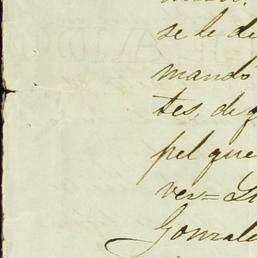 se le de
mando
tes, de q
pel que
ver= Li
Gonzale